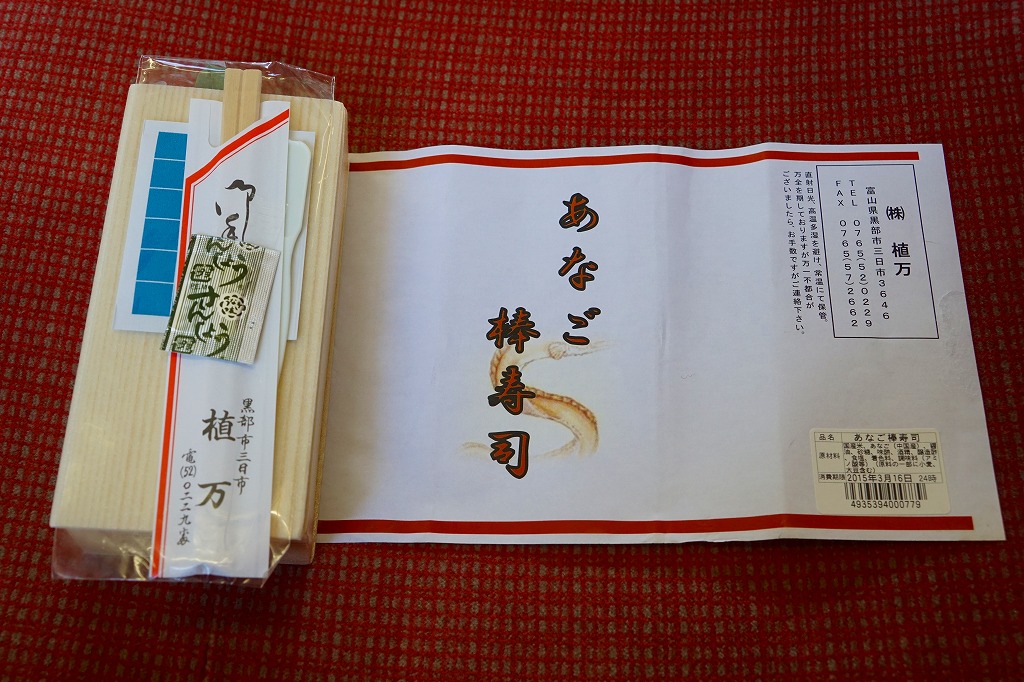 あなご
棒寿司
㈱ 植万
富山県黒部市三日市3646
TEL 0765(52)0229
FAX 0765(57)2662
直射日光、高温多湿を避け、常温にて保管。
万全を期しておりますが万一不都合が
ございましたら、お手数ですがご連絡下さい。
品名 あなご棒寿司
原材料 国産米、あなご（中国産）、醤
油、砂糖、味醂、酒精、醸造酢
、食塩、着色料、調味料（アミ
ノ酸等）（原料の一部に小麦、
大豆含む）
消費期限 2015年3月16日 24時
4935394000779
さんしょう
黒部市三日市
植万
電(52)〇二二九番